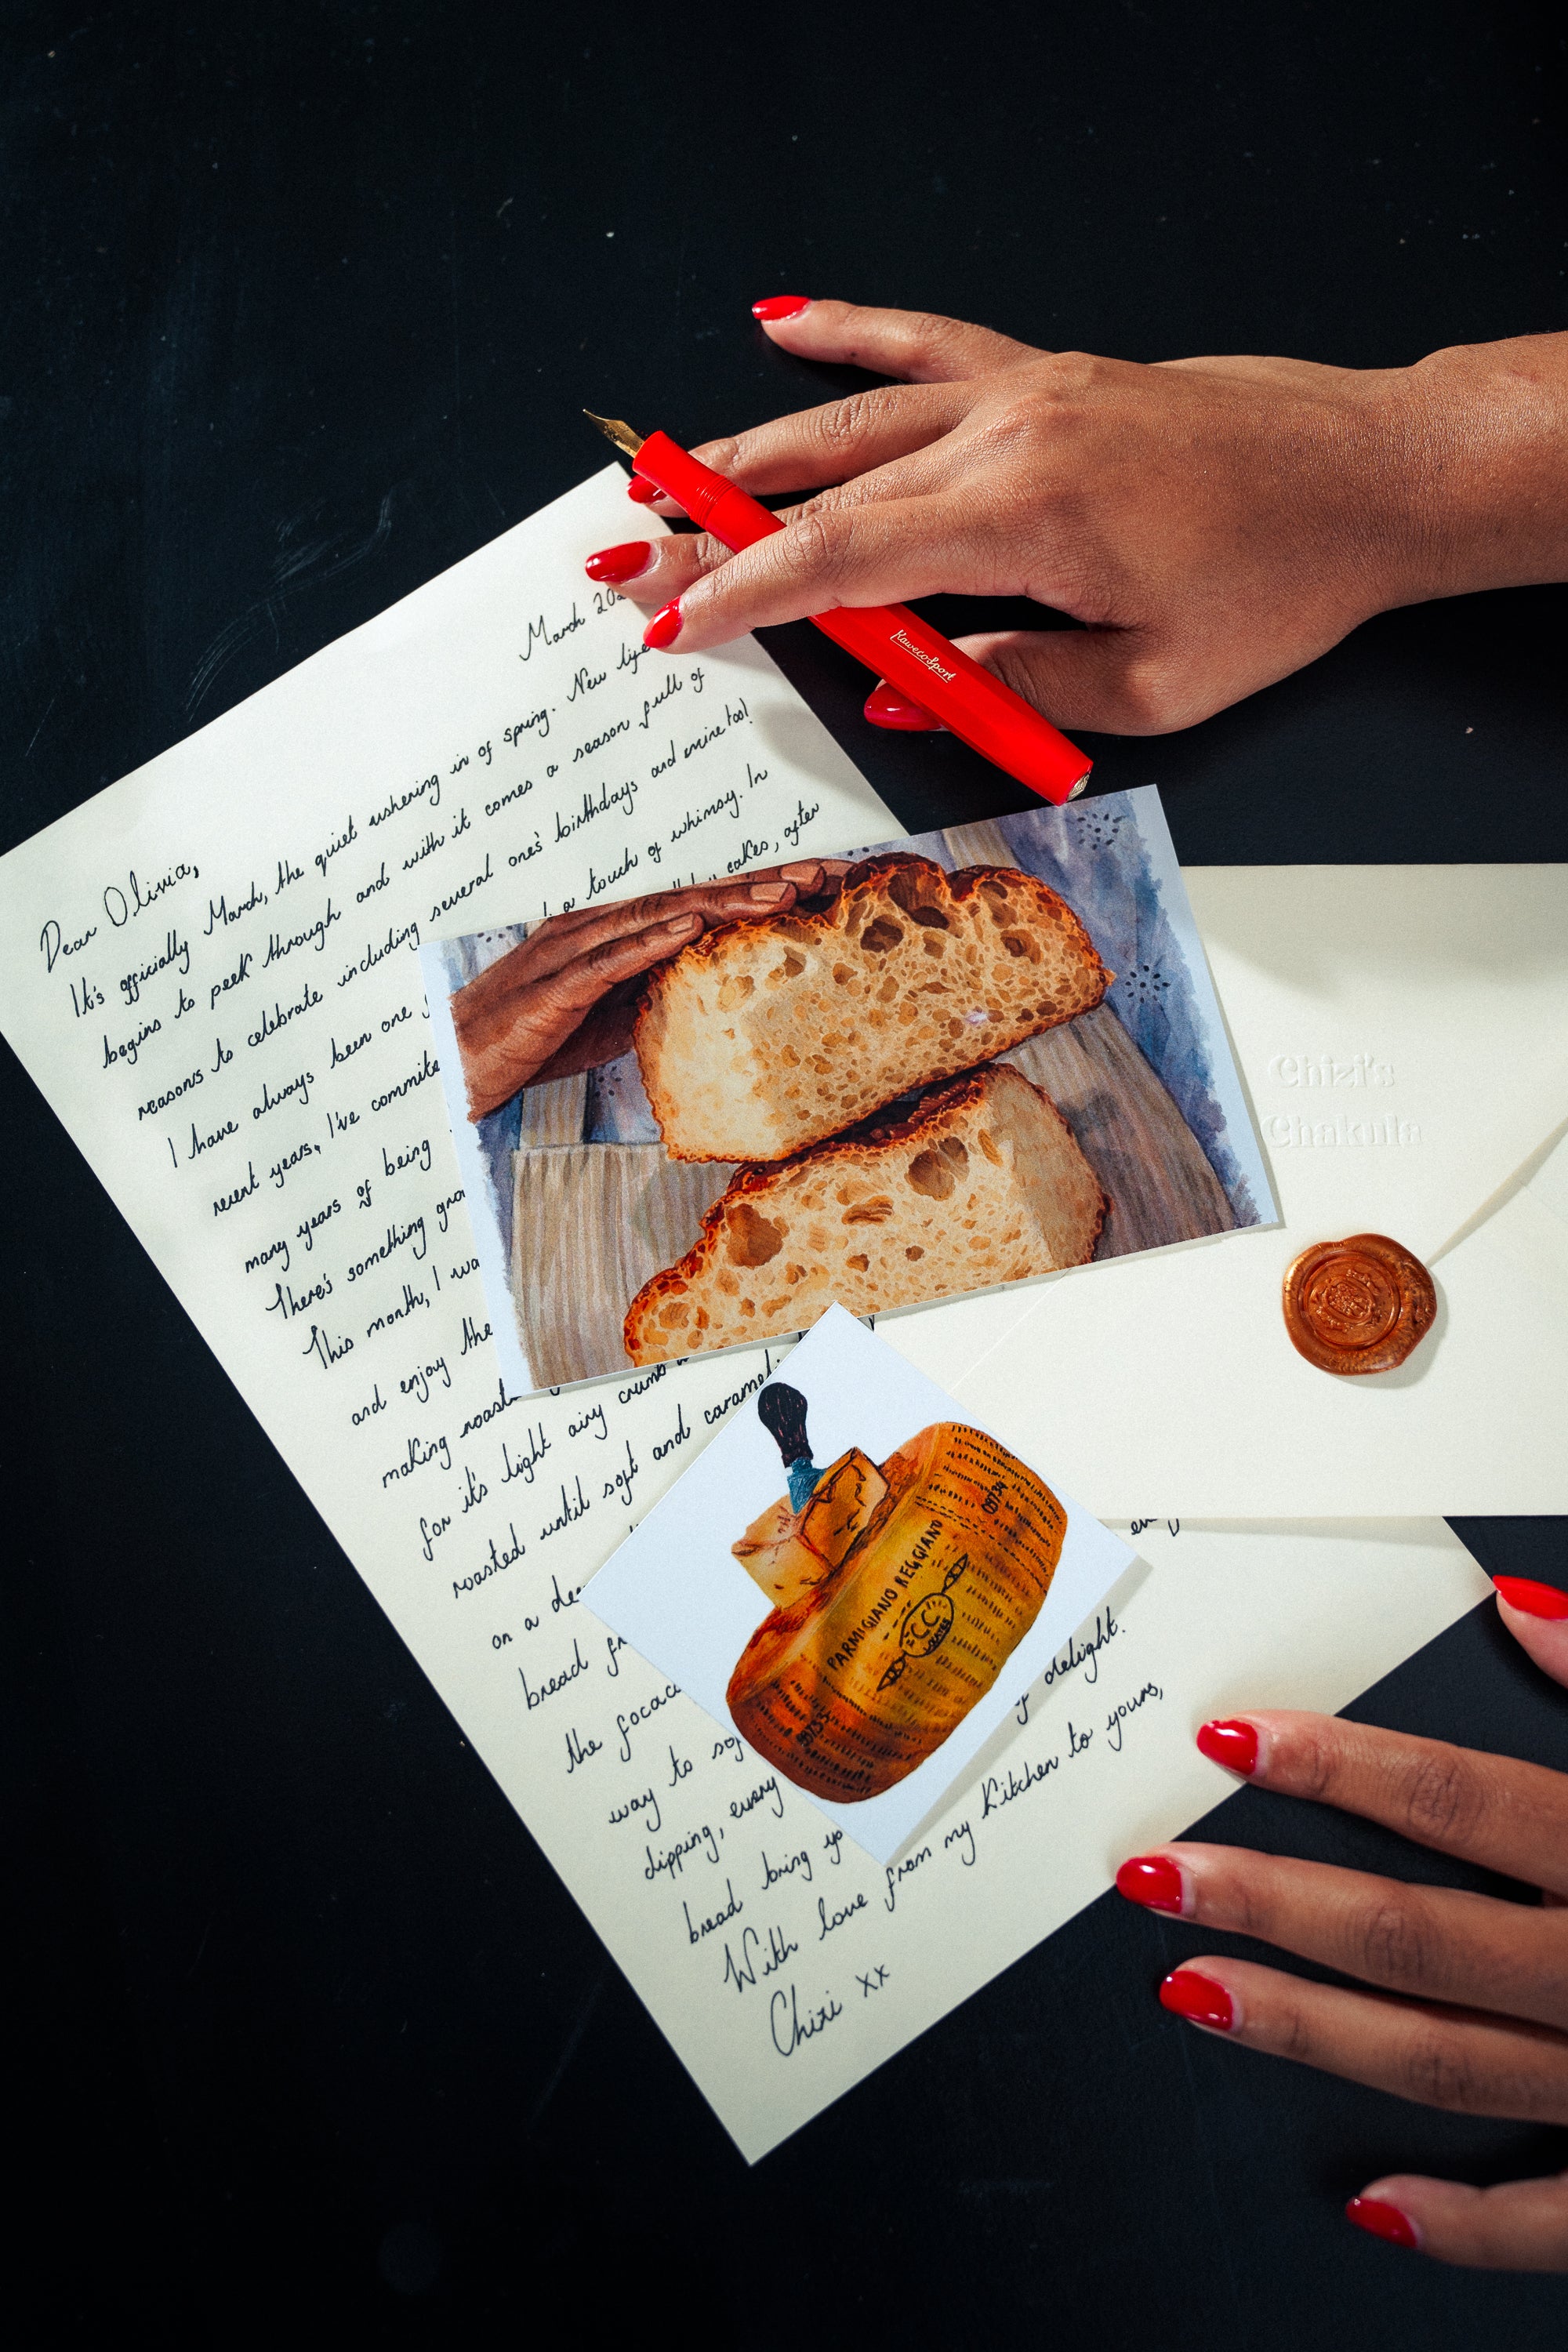 March
Dear Olivia,
It's officially March, the quiet ushering in of spring. New life
begins to peek through and with it comes a season full of
reasons to celebrate including several one's birthdays and mine too!
I have always been one a touch of whimsy. In
recent years, I've commite cakes, after
many years of being
There's something
This month, I wa
and enjoy the
making roast
for it's light airy crumb
roasted until soft and carameli
on a de
bread fr
the focacc
way to sof
dipping, every of delight.
bread bring yo
With love from my Kitchen to yours,
Chizi xx
KawecoSport
Chizi's
Chakula
PARMIGIANO REGGIANO
CC